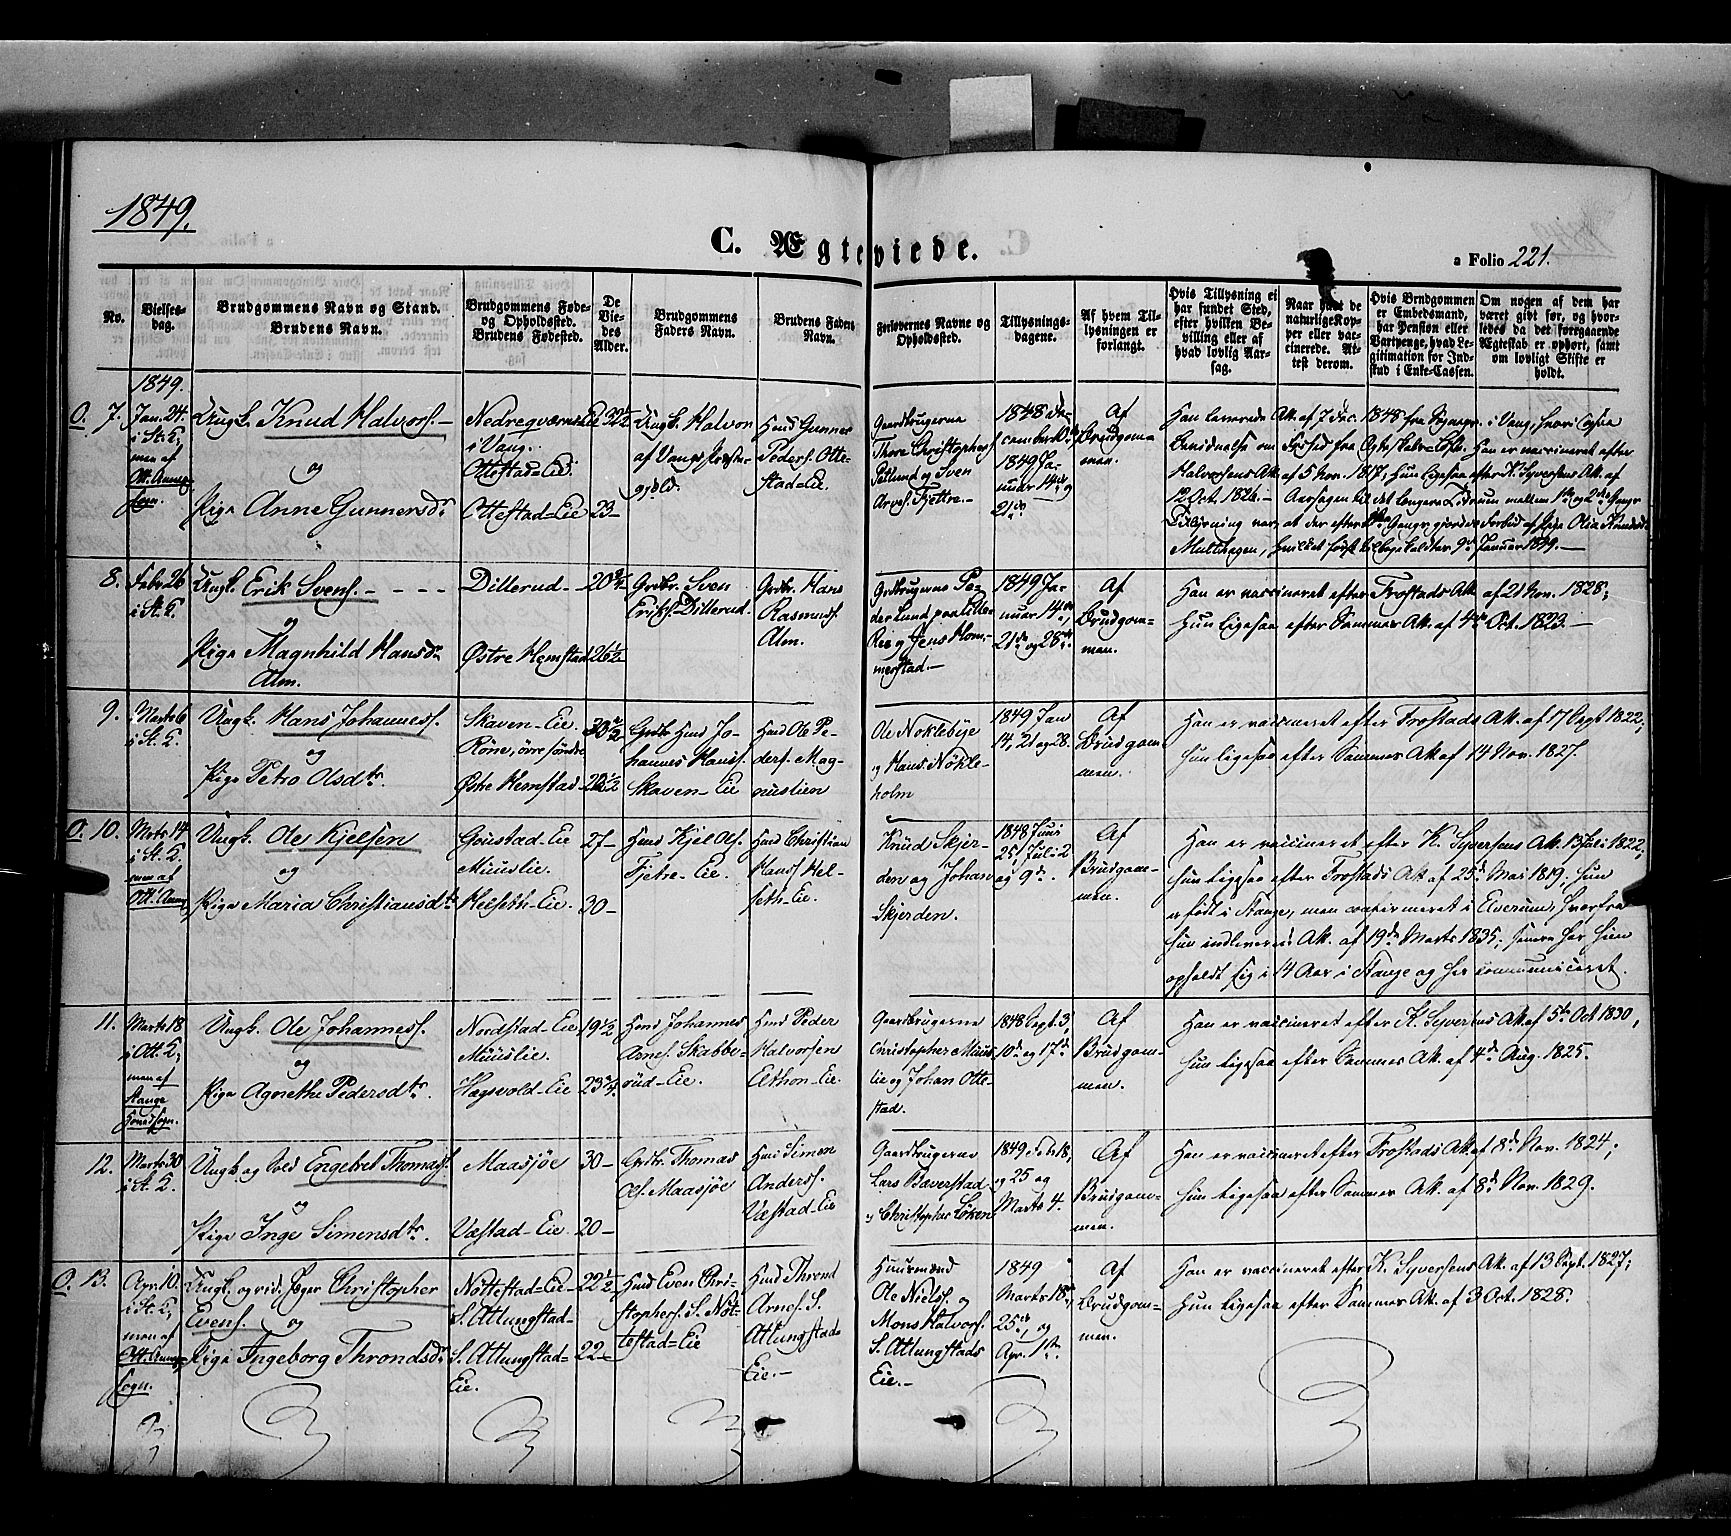 1849.
C. Ægteviede.
a Folio 221.
No.
Vielses-
dag.
Brudgommens Navn og Stand.
Brudens Navn.
Brudgommens Føde-
og Opholdssted.
Brudens Fødested.
De
Vie-
des
Alder.
Brudgommens
Faders Navn.
Brudens Faders
Navn.
Forlovernes Navne og
Opholdssted.
Tillysnings-
dagene.
Af hvem Til-
lysningen er
forlangt.
Hvis Tillysning ei
har fundet Sted,
efter hvilken Be-
villing eller af
hvad lovlig Aar-
sag.
Naar havt de
naturlige Kop-
per eller vac-
cinerede. At-
test derom.
Hvis Brudgommen
er Embedsmand,
har Pension eller
Vartpenge, hvad Le-
gitimation for Ind-
skud i Enke-Cassen.
Om nogen af dem har
været givt før, og hvor-
ledes da det foregaaende
Ægteskab er ophørt, samt
om lovligt Skifte er
holdt.
1849.
O. 7.
Jan. 24.
i St. K;
men af
Ott. Annex
Sogn.
Ungk. Knud Halvors. —
og
Pige Anne Gunnersdr
i Vang.
Ottestad-Eie.
Ottestad-Eie
32½
23—
Ungk. Halvor
af Vangs Præste-
gjeld.
Husd Gunner
Peders. Otte-
stad-Eie.
Gaardbrugerne
Thore Christophers.
og Sven
Arnes. Fjettre.
1848 De-
cember
1849 Ja-
nuar 14de og
21de
Af
Brudgom-
men.
Han leverede Att. af 7 Dec. 1848 fra Sognepr. i Vang
Halvorsens Att. af 5 Nov. 1817; Hun ligesaa efter K. Syversens Att. af
12 Oct. 1826. — Aarsagen til det længere Tidsrum mellem 1ste og 2den Gangs
Tillysning var, at der efter 1ste Gang gjordes Forbud af Pige
hvilket først tilbagekaldtes 9de Januar 1849. —
8.
Febr. 26
i St. K.
Ungk. Erik Svens. - - - -
og
Pige Magnhild Hansdr
Alm.
Dillerud
Østre Hemstad
20¾
26½
Grdbr. Sven
Eriks. Dillerud.
Grdbr. Hans
Rasmus.
Alm.
Grdbrugerne Pe-
der Lund paa Lille-
Rie og Jens Hom-
merstad. —
1849 Ja-
nuar 14de,
21de og 28de.
Af
Brudgom-
men.
Han er vaccineret efter Frostads Att. af 21 Nov. 1828;
Hun ligesaa efter Sammes Att. af 4de Oct. 1823. —
9.
Marts 6
i St. K.
Ungk. Hans Johannes.
og
Pige Petro Olsdtr.
Skaven-Eie.
Røne, øvre søndre
Østre Hemstad
30½
Grdbr Husd Jo-
hannes Hans.
Skaven-Eie
Husd Ole Pe-
ders. Mag-
nustien
Ole Noklebye
og Hans Nökle-
holm
1849 Jan
14, 21 og 28.
Af
Brudgom-
men.
Han er vaccineret efter Frostads Att. af 17 Sept 1822;
Hun ligesaa efter Sammes Att. af 14 Nov. 1827.
O. 10.
Marts 14
i St. K.
men af
Ott. Annex
Ungk. Ole Kjelsen
og
Pige Maria Christiansdtr
Gaustad-Eie
Muuslie.
Helseth-Eie.
27—
30—
Husd Kjel Ols.
Fjetre-Eie.
Husd Christian
Hans. Hel-
seth-Eie.
Knud Skjer-
den og Johan
Skjerden.
1848 Juni
25, Juli 2
og 9de.
Af
Brudgom-
men.
Han er vaccineret efter K. Syversens Att. 13 Juli 1822;
Hun ligesaa efter Frostads Att. af 25de Mai 1819; Hun
er født i Stange, men confirmeret i Elverum, hvorfra
hun indleverede Att. af 19de Marts 1835;
opholdt sig i 14 Aar i Stange og her communiceret.
11.
Marts 18
i Ott. K;
men af
Stange
Hovedsogn.
Ungk. Ole Johannes.
og
Pige Agnethe Pedersdtr.
Nordstad-Eie
Muuslie.
Hagsvold-Eie
19½
23¾
Husd Johannes
Arnes. Skabbe-
rud-Eie.
Husd Peder
Halvorsen
Elthon-Eie.
Gaardbrugerne
Christopher Muus-
lie og Johan Otte-
stad.
1848 Sept. 3,
10de og 17de
Af
Brudgom-
men.
Han er vaccineret efter K. Syversens Att. af 5te Oct 1830,
Hun ligesaa efter Sammes Att. af 4de Aug. 1825.
12.
Marts 30
i St. K.
Ungk. og Engebret Thomas.
og
Pige Inge Simensdtr.
Maasjøe
Væstad-Eie
30—
20—
Grdbr. Thomas
Ols. Maasjøe
Husd Simen
Anders.
Væstad-Eie
Gaardbrugerne
Lars Baverstad
og Christopher Løken
1849 Feb 18,
og 25 og
Marts 4.
Af
Brudgom-
men.
Han er vaccineret efter Frostads Att. af 8de Nov. 1824;
Hun ligesaa efter Sammes Att. af 8de Nov. 1829.
O. 13.
Apr. 10.
i St. K;
men af
Ott. Annex
Sogn.
Ungk. og rid. Jæger Christopher
Evens. og
Pige Ingeborg Throndsdr
Nöttestad-Eie
S. Atlungstad-
S. Atlungstad-
Eie.
22½
22—
Husd Even Chri-
stophers. S. Nöt-
testad-Eie
Husd Thrond
Arnes. S.
Atlungstad-
Eie. —
Huusmænd
Ole Niels. og
Mons Halvors.
S. Atlungstads
Eie. —
1849
Marts 18de,
25de, og
Apr. 1ste.
Af
Brudgom-
men.
Han er vaccineret efter K. Syversens Att. af 13 Sept. 1827;
Hun ligesaa efter Sammes Att. af 3 Oct. 1828.